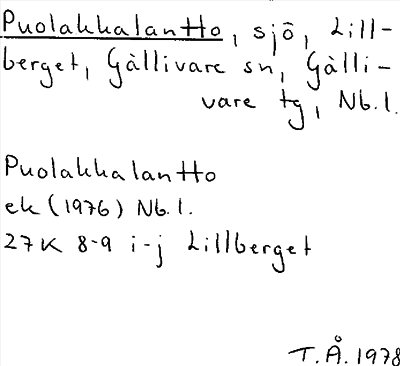 Puolakkalantto, sjö, Lill-
berget, Gällivare sn, Gälli-
vare tg, Nb.l.
Puolakkalantto
ek (1976) Nb.l.
27K 8-9 i-j Lillberget
T.Å. 1978